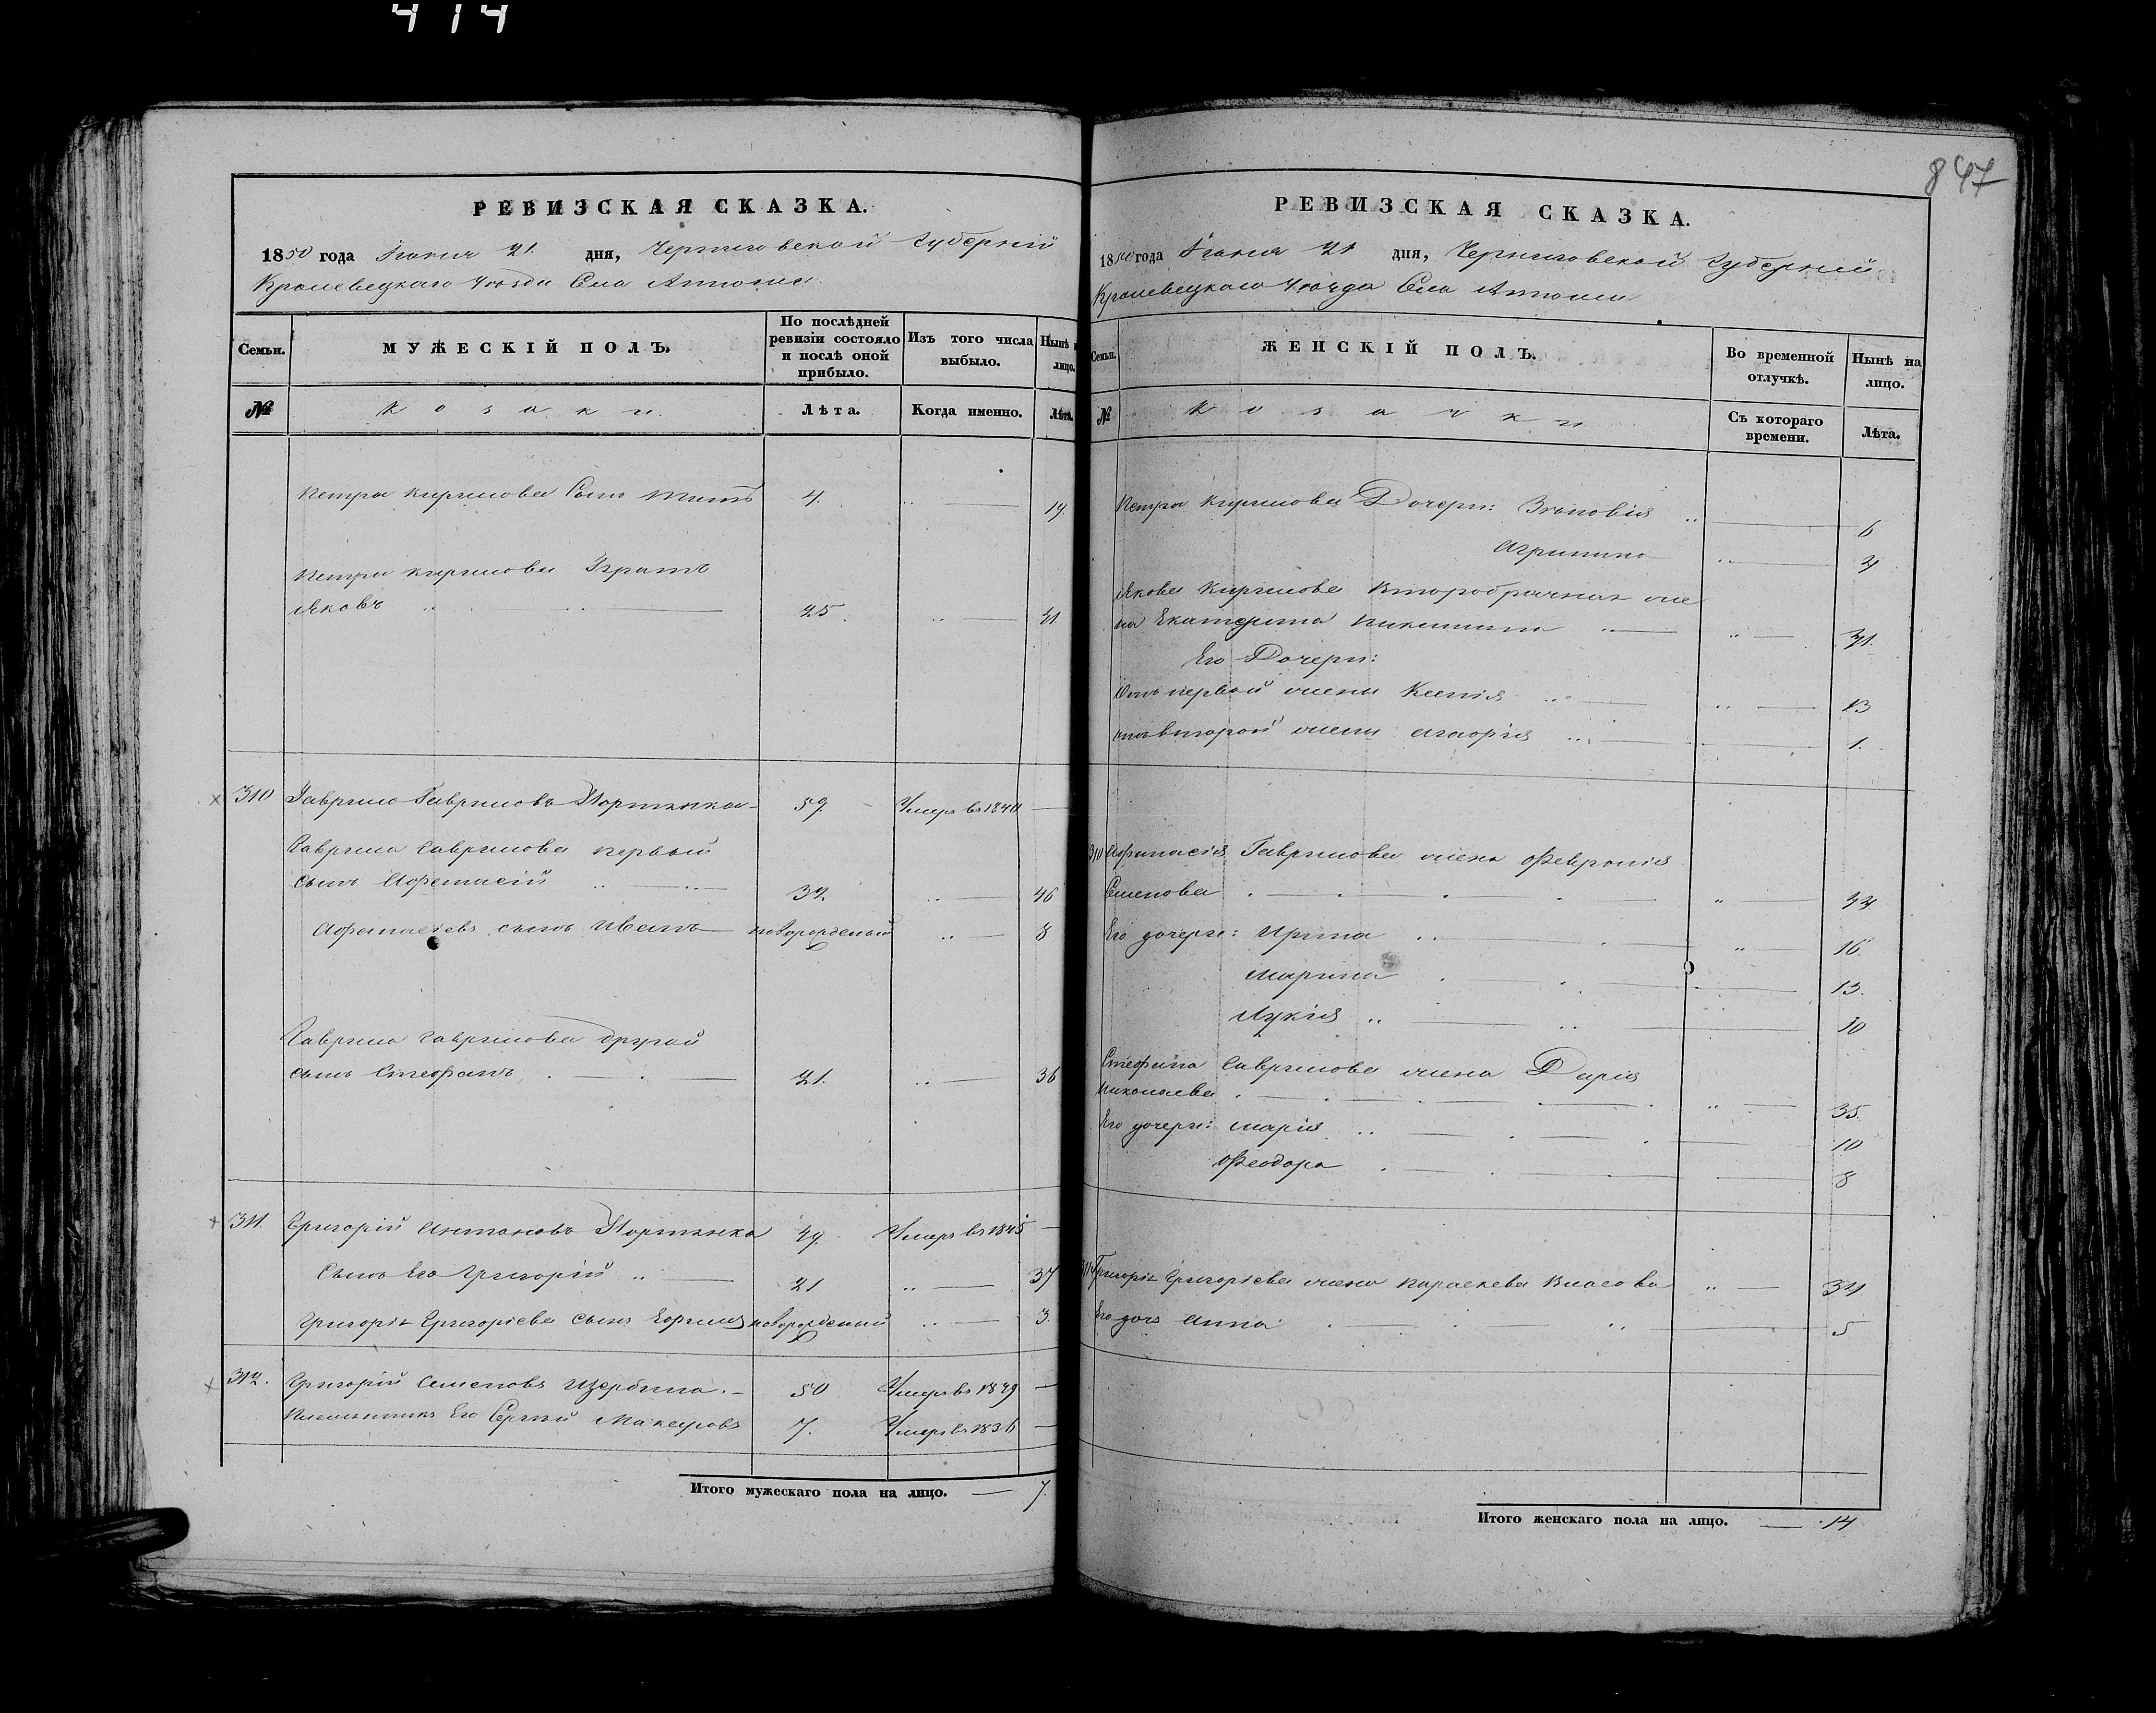 414
847
РЕВИЗСКАЯ СКАЗКА.
1850 года Iюня 21 дня, Черниговской Губернiи
Кролевецкаго Уѣзда Села
Семьи.
МУЖЕСКIЙ ПОЛЪ.
По послѣдней ревизiи состояло и послѣ оной прибыло.
Изъ того числа выбыло.
Нынѣ лицо.
№
Козаки
Лѣта.
Когда именно.
Лѣта.
Петра Кирилова Сынъ Титъ 4. 19.
Петра Кирилова Братъ
Яковъ 25. 41
310 Гаврило Гавриловъ 59 Умеръ въ 1840 —
Гаврила Гаврилова первый
сынъ Афанасiй 32. 46
Афанасiевъ сынъ Иванъ новорожденый 8
Гаврила Гаврилова другой
сынъ Стефанъ 21. 36
311. Григорiй Антоновъ 49. Умеръ въ 1845 —
Сынъ Его Григорiй 21 37
Григорiя Григорiева сынъ новорожденый 3
312. Григорiй Семеновъ Щербина. 50 Умеръ въ 1849 —
Племянникъ Его Сергѣй 7. Умеръ въ 1836 —
Итого мужескаго пола на лицо. — 7.
РЕВИЗСКАЯ СКАЗКА.
1850 года Iюня 21 дня, Черниговской Губернiи
Кролевецкаго Уѣзда Села
Семьи.
ЖЕНСКIЙ ПОЛЪ.
Во временной отлучкѣ.
Нынѣ на лицо.
№
Козачки
Съ котораго времени.
Лѣта.
Петра Кирилова Дочери: Зѣновiя 6
Агрипина
Якова Кирилова Второбрачная же
на Екатерина Никитина
Его Дочери:
Отъ первой жены Ксенiя 13
отъ второй жены 1.
310 Афанасiя Гаврилова жена Февронiя
Семенова
Его дочери: Ирина 16
Марина 13.
Лукiя 10
Стефана Гаврилова жена Дарiя
Николаева 35.
Его дочери: Марiя 10
Феодора 8
311 Григорiя Григорiева жена Параскева Власова 34
Его дочь Анна 5
Итого женскаго пола на лицо. — 14